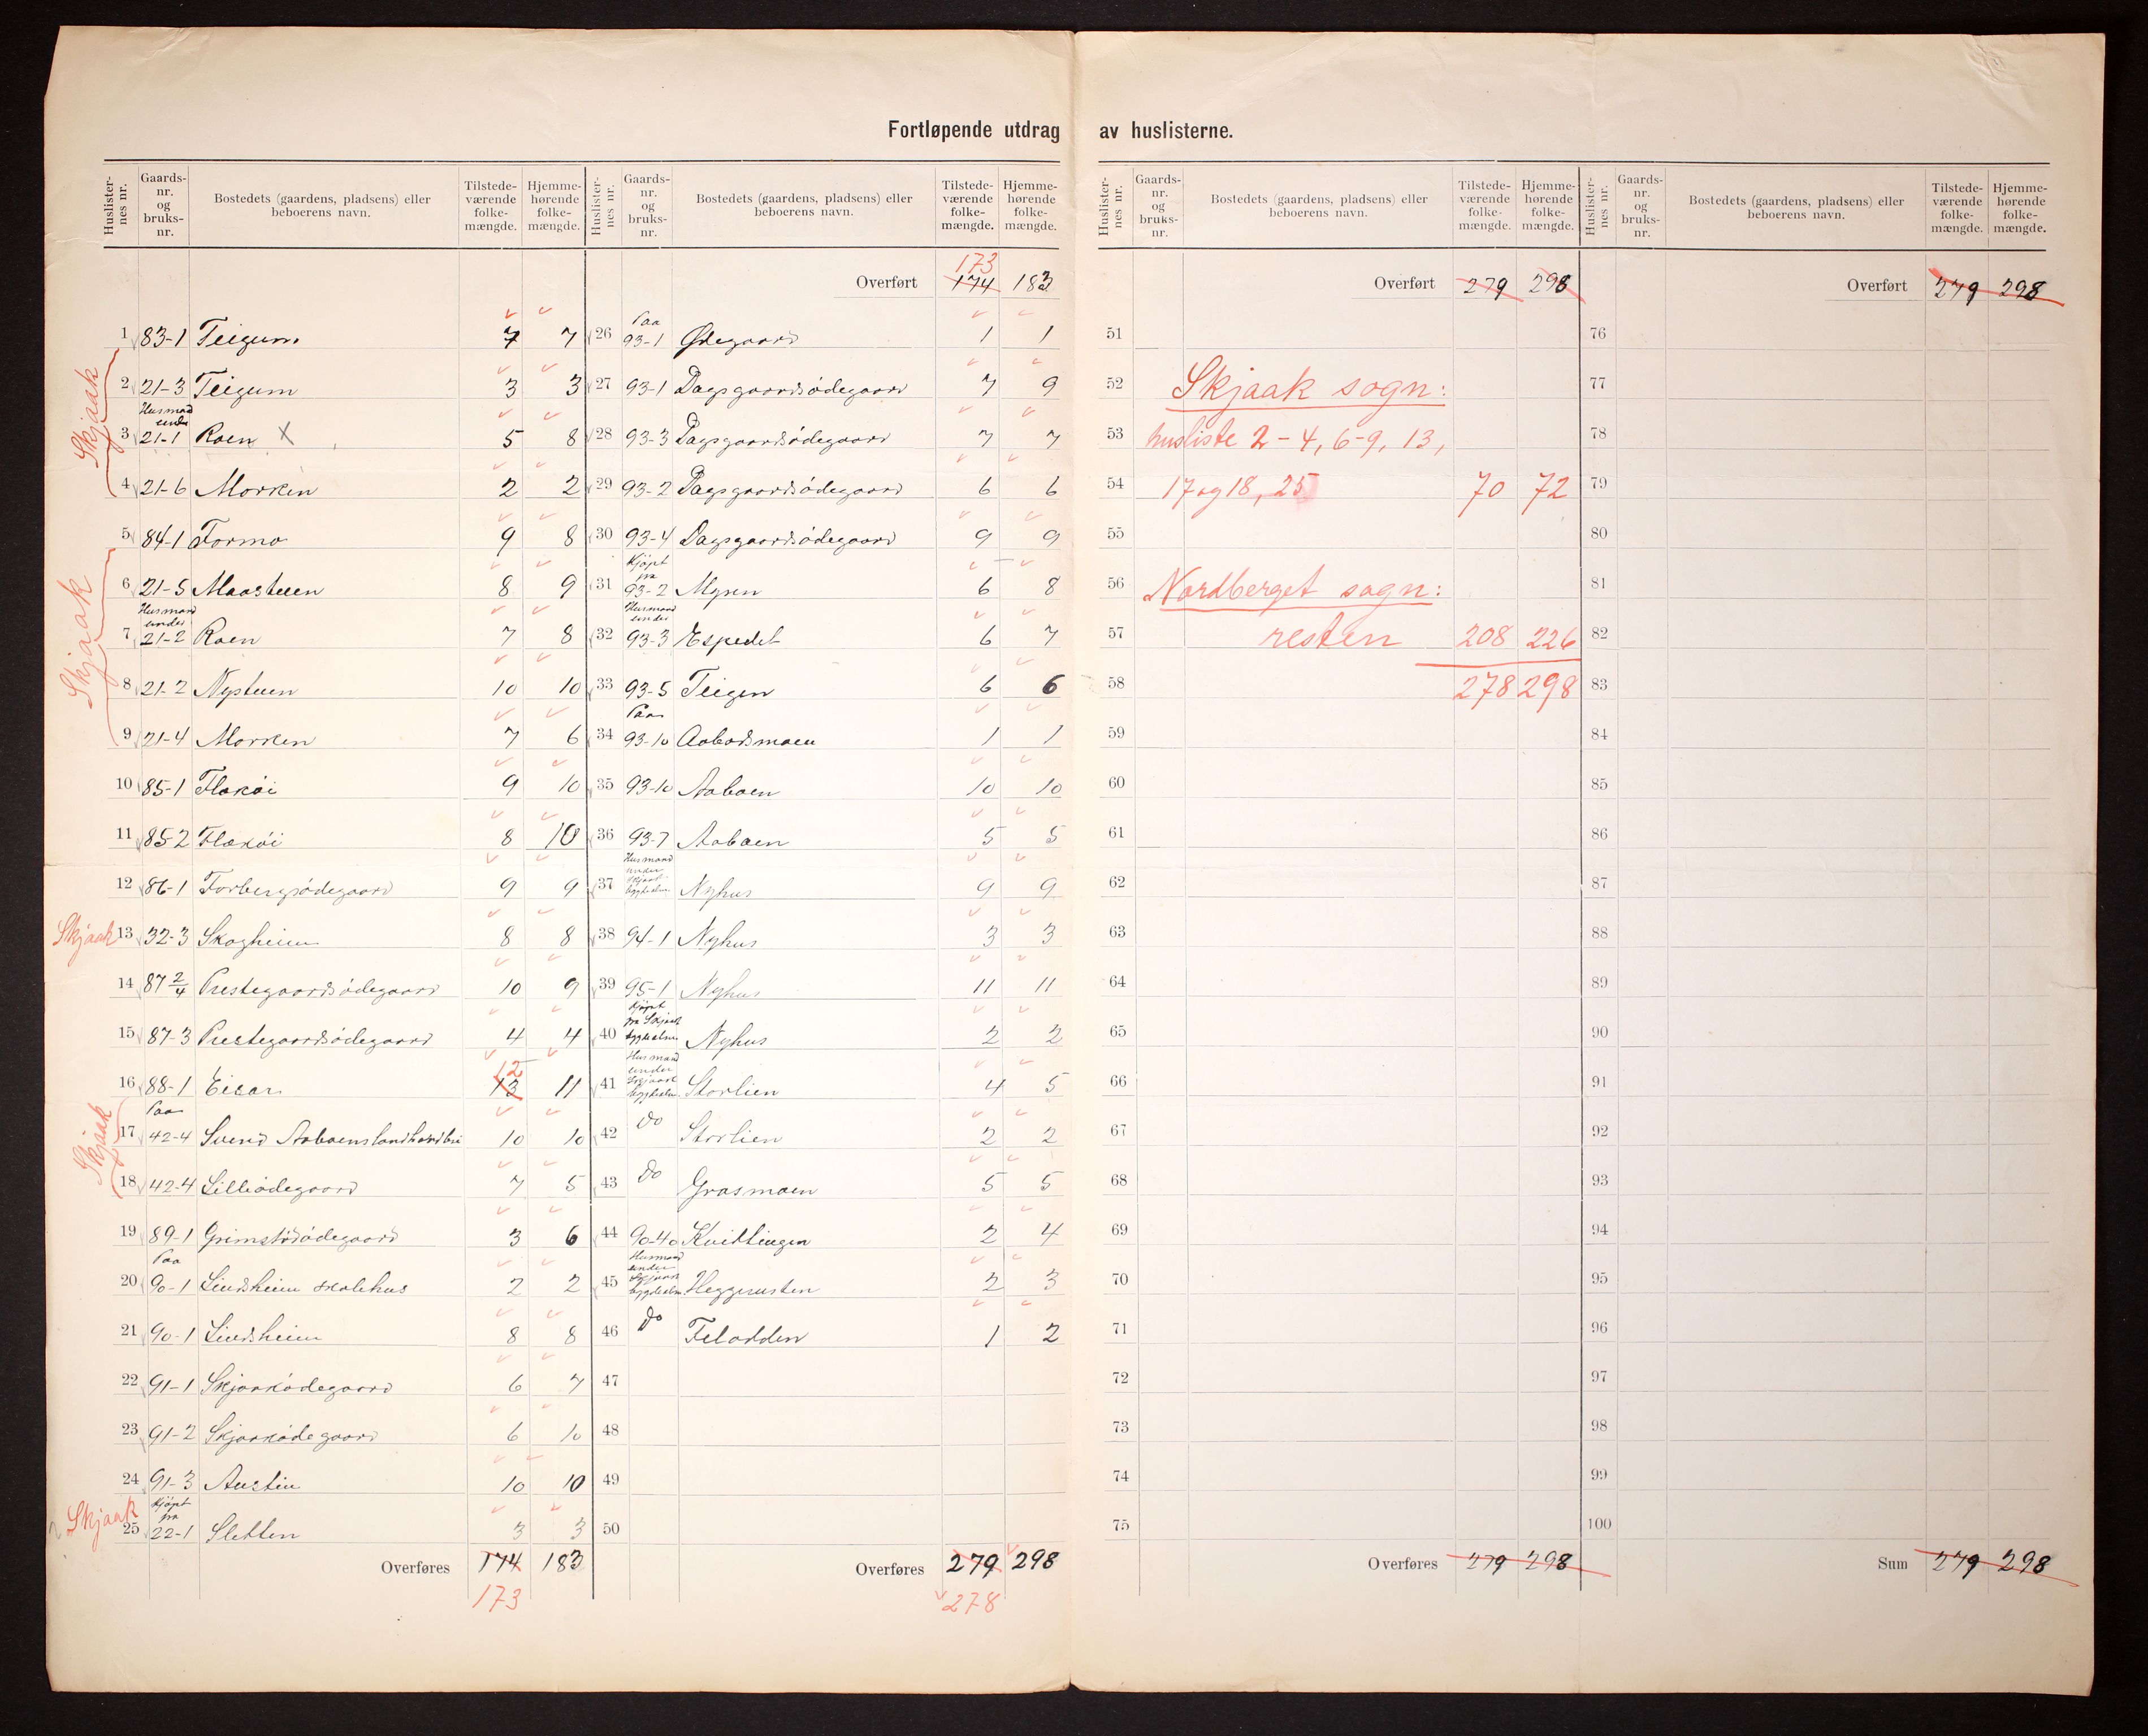 Fortløpende utdrag av huslisterne.
Huslisternes nr. | Gaards-nr. og bruks-nr. | Bostedets (gaardens, pladsens) eller beboerens navn. | Tilstedeværende folkemængde. | Hjemmehørende folkemængde.
1 83-1 Teigum 7 7
Skjaak
2 21-3 Teigum 3 3
3 Husmand under 21-1 Roen X 5 8
4 21-6 Morken 2 2
5 84-1 Formo 9 8
Skjaak
6 21-5 Maasteen 8 9
7 Husmand under 21-2 Roen 7 8
8 21-2 Nysteen 10 10
9 21-4 Morken 7 6
10 85-1 Flakøi 9 10
11 85-2 Flækøi 8 10
12 86-1 Forbergsødegaard 9 9
Skjaak 13 32-3 Skogheim 8 8
14 87 2/4 Prestegaardsødegaard 10 9
15 87-3 Prestegaardsødegaard 4 4
16 88-1 Eizar 13 12 11
Skjaak
17 Paa 42-4 Svend Aaboens landhandleri 10 10
18 42-4 Lilleødegaard 7 5
19 89-1 Grimstadødegaard 3 6
20 Paa 90-1 Lindsheim skolehus 2 2
21 90-1 Lindsheim 8 8
22 91-1 Skjaakødegaard 6 7
23 91-2 Skjaakødegaard 6 10
24 91-3 Austin 10 10
Skjaak 25 Kjøpt fra 22-1 Sletten 3 3
Overføres 174 183
173
Huslisternes nr. | Gaards-nr. og bruks-nr. | Bostedets (gaardens, pladsens) eller beboerens navn. | Tilstedeværende folkemængde. | Hjemmehørende folkemængde.
173
Overført 174 183
26 Paa 93-1 Ødegaard 1 1
27 93-1 Dagsgaardsødegaard 7 9
28 93-3 Dagsgaardsødegaard 7 7
29 93-2 Dagsgaardsødegaard 6 6
30 93-4 Dagsgaardsødegaard 9 9
31 Kjøpt fra 93-2 Myren 6 8
32 Husmand under 93-3 Espedet 6 7
33 93-5 Teigen 6 6
34 Paa 93-10 Aabodsmoen 1 1
35 93-10 Aaboen 10 10
36 93-7 Aaboen 5 5
37 Husmand under Skjaak bygdealm. Nyhus 9 9
38 94-1 Nyhus 3 3
39 95-1 Nyhus 11 11
40 Kjøpt fra Skjaak bygdealm. Nyhus 2 2
41 Husmand under Skjaak bygdealm. Storlien 4 5
42 do Storlien 2 2
43 do Grasmoen 5 5
44 90-40 Kvitlingen 2 4
45 Husmand under Skjaak bygdealm. Heggerusten 2 3
46 do Felodden 1 2
47
48
49
50
Overføres 279 298
278
Huslisternes nr. | Gaards-nr. og bruks-nr. | Bostedets (gaardens, pladsens) eller beboerens navn. | Tilstedeværende folkemængde. | Hjemmehørende folkemængde.
Overført 279 298
51
52 Skjaak sogn:
53 husliste 2-4, 6-9, 13,
54 17 og 18, 25 70 72
55
56 Nordberget sogn:
57 resten 208 226
58 278 298
59
60
61
62
63
64
65
66
67
68
69
70
71
72
73
74
75
Overføres 279 298
Huslisternes nr. | Gaards-nr. og bruks-nr. | Bostedets (gaardens, pladsens) eller beboerens navn. | Tilstedeværende folkemængde. | Hjemmehørende folkemængde.
Overført 279 298
76
77
78
79
80
81
82
83
84
85
86
87
88
89
90
91
92
93
94
95
96
97
98
99
100
Sum 279 298